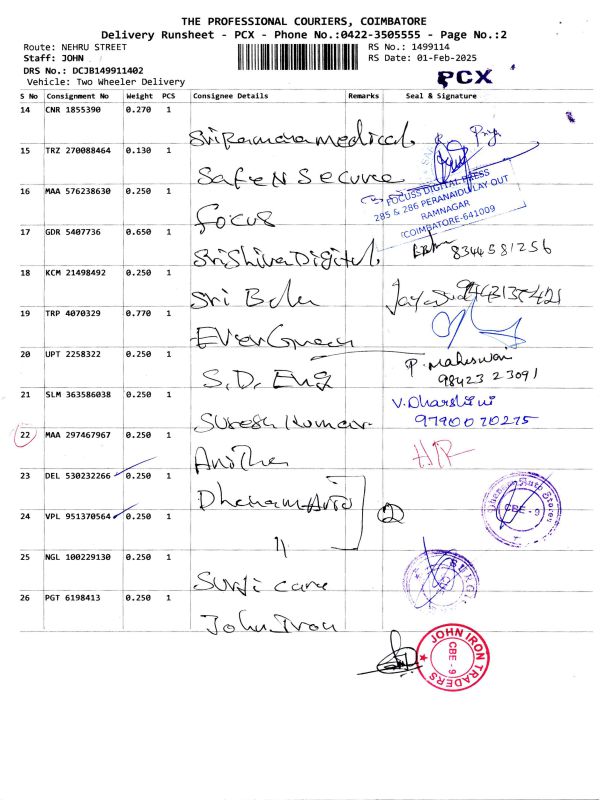 THE PROFESSIONAL COURIERS, COIMBATORE
Delivery Runsheet - PCX - Phone No.:0422-3505555 - Page No.:2
Route: NEHRU STREET
RS No.: 1499114
Staff: JOHN
RS Date: 01-Feb-2025
DRS No.: DCJB149911402
PCX
Vehicle: Two Wheeler Delivery
S No Consignment No Weight PCS Consignee Details Remarks Seal & Signature
14 CNR 1855390 0.270 1
Priya
15 TRZ 270088464 0.130 1
Safe N Secure
16 MAA 576238630 0.250 1
FOCUSS DIGITAL PRESS
285 & 286 PERANAIDU LAY OUT
RAMNAGAR
COIMBATORE-641009
Focus
17 GDR 5407736 0.650 1
Sri Shiva Digital
8344581256
18 KCM 21498492 0.250 1
Sri Bala
19 TRP 4070329 0.770 1
Ever Green
20 UPT 2258322 0.250 1
S.D. Eng
P. Maheswari
98423 23091
21 SLM 363586038 0.250 1
Suresh Kumar
V. Dharshini
9790070275
22 MAA 297467967 0.250 1
Anitha
23 DEL 530232266 0.250 1
24 VPL 951370564 0.250 1
②
CBE - 9
"
25 NGL 100229130 0.250 1
Surji care
26 PGT 6198413 0.250 1
John Iron
JOHN IRON TRADERS
CBE - 9